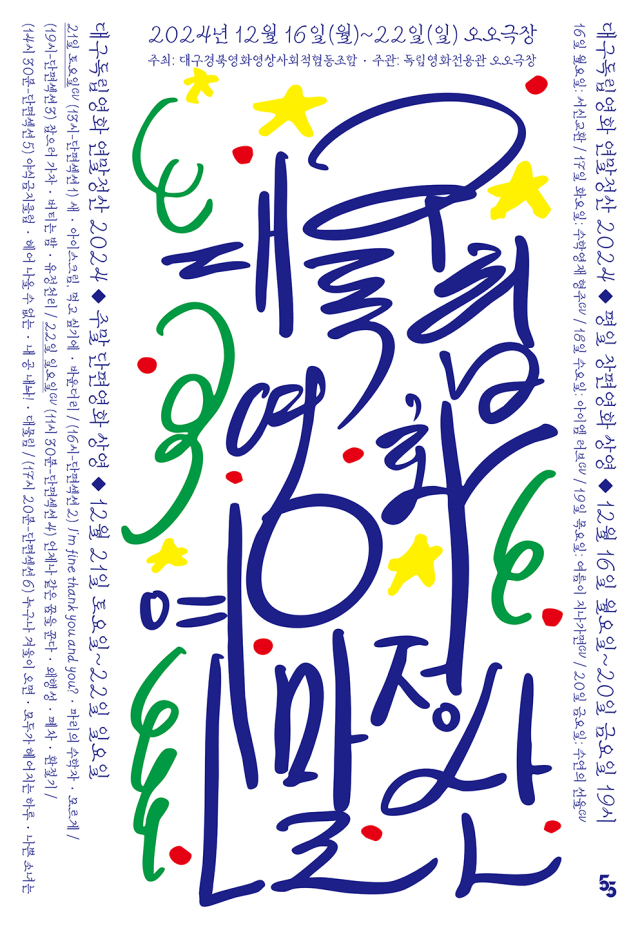 2024년 12월 16일(월)~22일(일) 오오극장
주최: 대구경북영화영상사회적협동조합 · 주관: 독립영화전용관 오오극장
대구독립영화 연말정산
대구독립영화 연말정산 2024 ◆ 평일 장편영화 상영 ◆ 12월 16일 월요일~20일 금요일 19시
16일 월요일: 서신교환 / 17일 화요일: 수학영재 형주GV / 18일 수요일: 아이엠 러브GV / 19일 목요일: 여름이 지나가면GV / 20일 금요일: 수연의 선율GV
대구독립영화 연말정산 2024 ◆ 주말 단편영화 상영 ◆ 12월 21일 토요일~22일 일요일
21일 토요일GV (13시-단편섹션 1) 새 · 아이스크림: 먹고 싶기에 · 바운더리 / (16시-단편섹션 2) I'm fine thank you and you? · 파리의 수학자 · 모르게 /
(19시-단편섹션 3) 잠으러 가자 · 버티는 밤 · 유정천리 / 22일 일요일GV (11시 30분-단편섹션 4) 언제나 같은 꿈을 꾼다 · 외행성 · 폐차 · 환절기 /
(14시 30분-단편섹션 5) 야식금지클럽 · 헤어 나올 수 없는 · 내 공 내놔! · 대물림 / (17시 20분-단편섹션 6) 누구나 겨울이 오면 · 모두가 헤어지는 하루 · 나쁜 소녀는
55